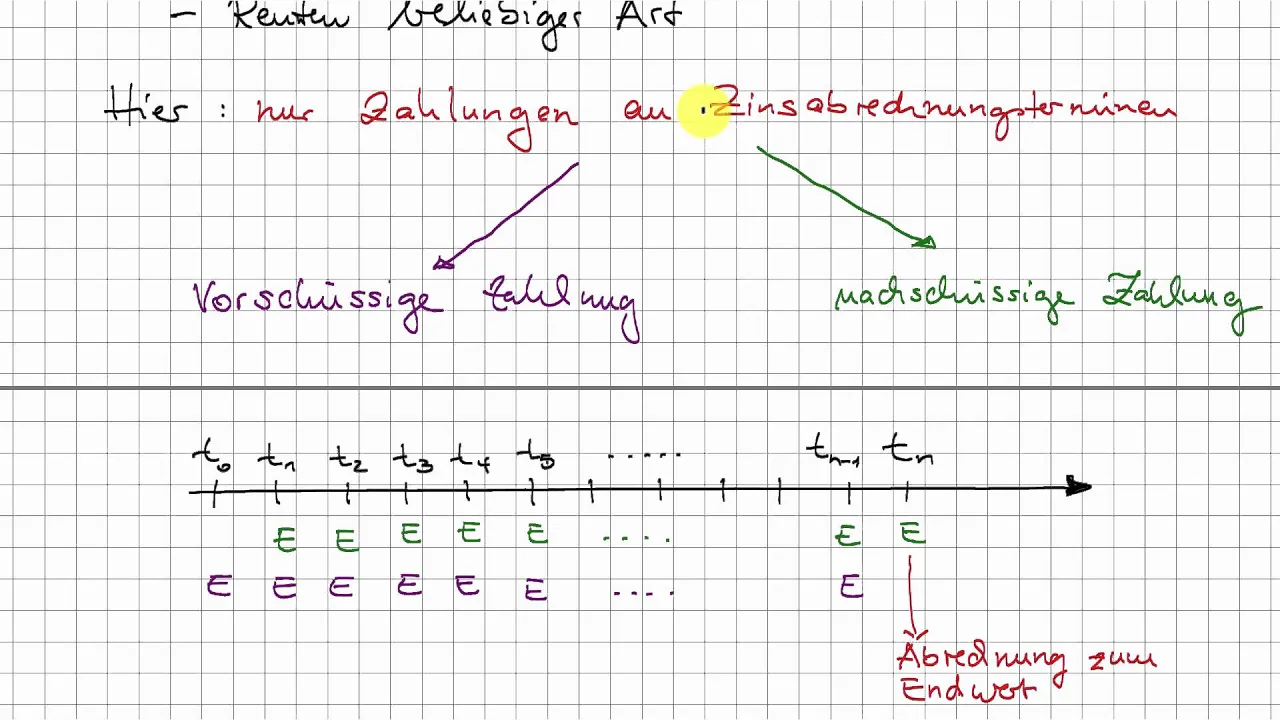 - Renten beliebiger Art
Hier: nur Zahlungen an Zinsabrechnungsterminen
Vorschüssige Zahlung
nachschüssige Zahlung
t₀ t₁ t₂ t₃ t₄ t₅ ..... tₙ₋₁ tₙ
E E E E E .... E E
E E E E E E .... E
Abrechnung zum
Endwert